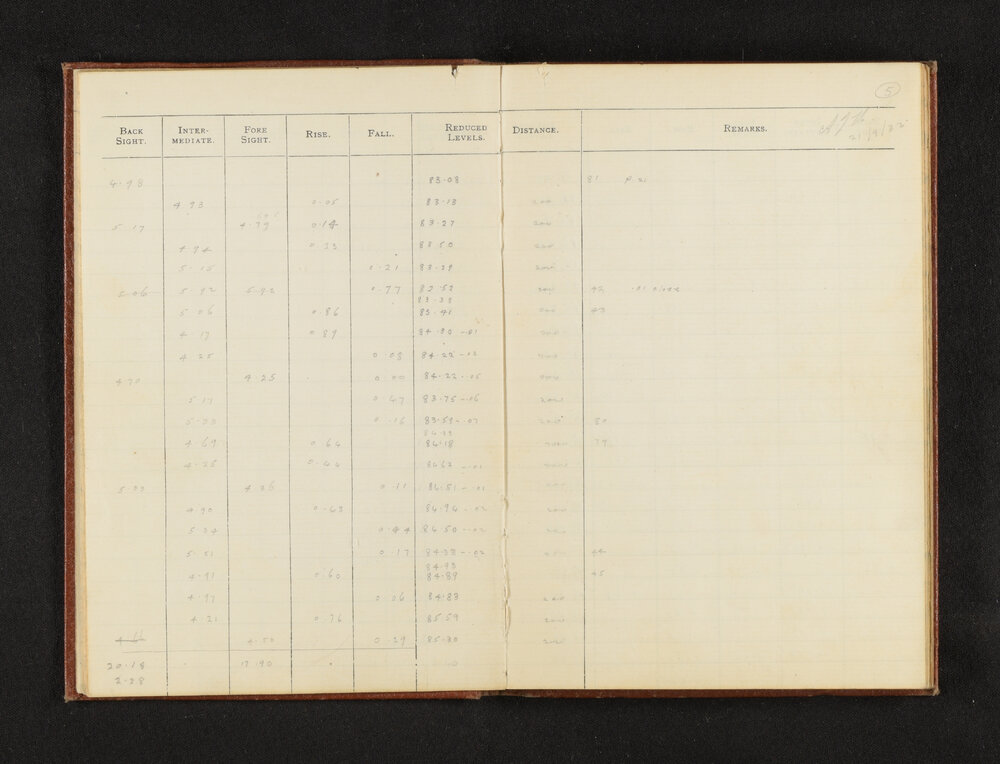 5
BACK SIGHT. INTER-MEDIATE. FORE SIGHT. RISE. FALL. REDUCED LEVELS. DISTANCE. REMARKS.
4.98 83.08 81
4 93 0.05 83.13 200
5.17 4.79 0.14 83.27 200
4 94 0.23 83 50 200
5.15 0.21 83.29 200
5.06 5.92 5.92 0.77 82.52 200 42
5 06 0.86 83.41 200 43
4.17 0.89 84.30 -.01 200
4 25 0.08 84.22 -.02 200
4 70 4 25 0.00 84.22 -.05 200
5 17 0.47 83.75 -.06 200
5.33 0.16 83.59 -.07 200 80
4.69 0.64 84.18 200 79
4.25 0.44 84.62 -.01 200
4 36 0.11 84.51 -.01
4.90 0.43 84.94 -.02 200
5 34 0.44 84.50 -.02
5.51 0.17 84.33 -.02 44
84.93
4.91 0.60 84.89 45
4.97 0.06 84.83 200
4 21 0.76 85.59 200
4.50 0.29 85.30 200
20.18 17.90
2.28